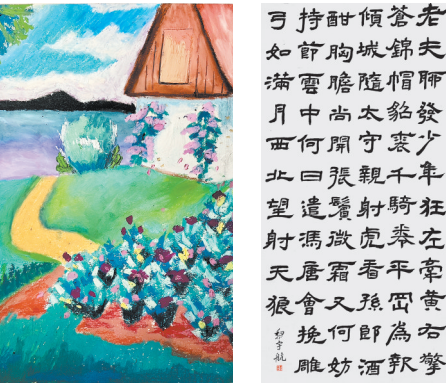 老夫聊發少年狂左牽黃右擎
蒼錦帽貂裘千騎卷平岡為報
傾城隨太守親射虎看孫郎酒
酣胸膽尚開張鬢微霜又何妨
持節雲中何日遣馮唐會挽雕
弓如滿月西北望射天狼